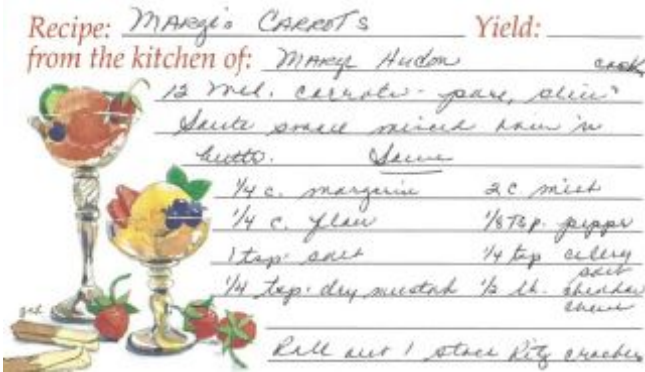 Recipe: Margi's CARROTS Yield:
from the kitchen of: Margi Hudon
cook
12 med. carrots - pare, slice
Saute small minced onion in
butter. Sauce
1/4 c. margarine 2 c milk
1/4 c. flour 1/8 Tsp. pepper
1 tsp. salt 1/4 tsp celery salt
1/4 tsp. dry mustard 1/2 lb. cheddar cheese
Roll out 1 stack Ritz crackers